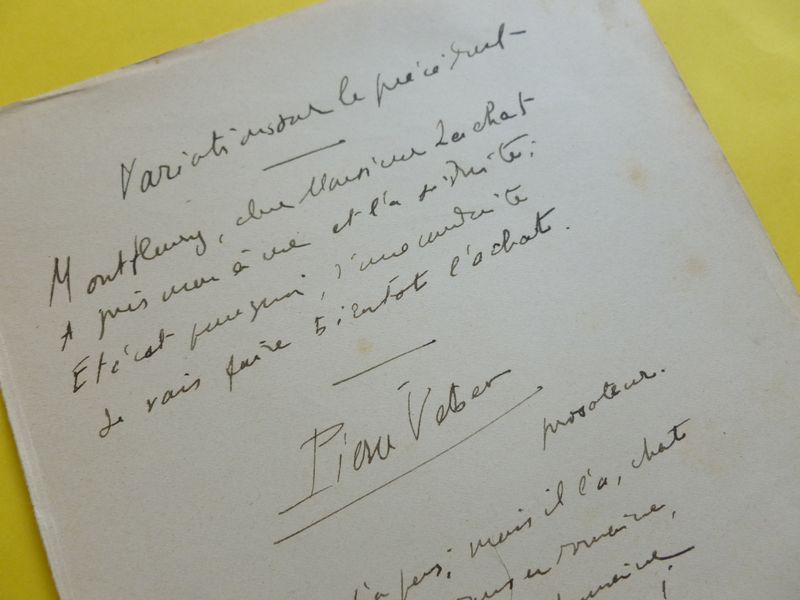 Variations sur le précédent
Montfleury, chez Monsieur Lachat
A pris mon âme et l'a séduite;
Et c'est pourquoi, d'une conduite
Je vais faire bientôt l'achat.
Pierre Veber
prosateur.
l'a pas; mais il l'a, chat
en romaine,